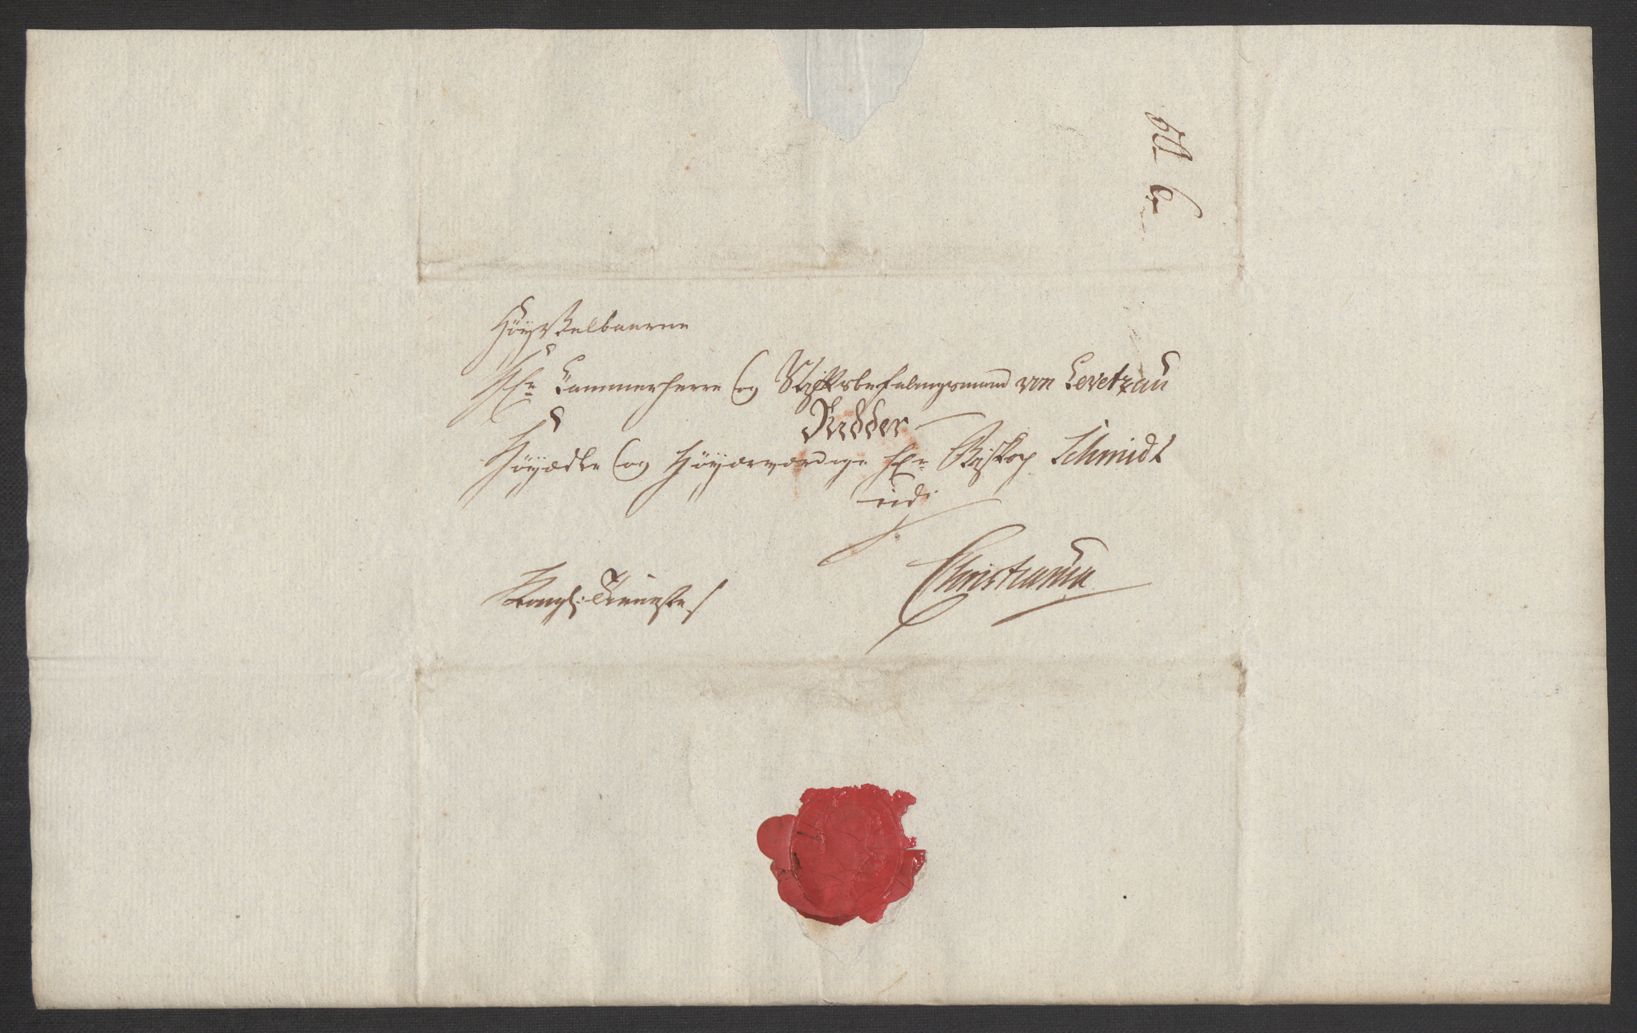 Høyvelbaarne
Hr Cammerherre og Stiftsbefalingsmand von Levetzau
Ridder
Høyædle og Høyærværdige Hr Biskop Schmidt
udi
Christiania
Kongl: Tieneste